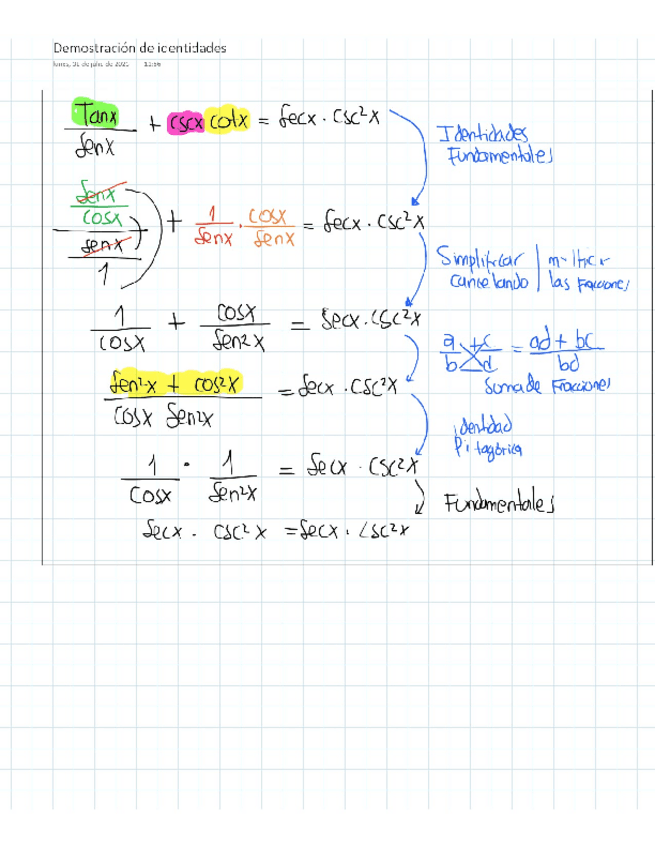 Demostración de identidades
lunes, 31 de julio de 2023 11:56
Tanx/Senx + cscx cotx = Secx · Csc²x
Identidades Fundamentales
(Senx/Cosx)/(Senx/1) + 1/Senx · Cosx/Senx = Secx · Csc²x
Simplificar Cancelando | multiplicar las Fracciones
1/Cosx + Cosx/Sen²x = Secx · Csc²x
a/b + c/d = ad + bc/bd
Suma de Fracciones
Sen²x + Cos²x/Cosx Sen²x = Secx · Csc²x
identidad Pitagórica
1/Cosx · 1/Sen²x = Secx · Csc²x
Fundamentales
Secx · Csc²x = Secx · Csc²x